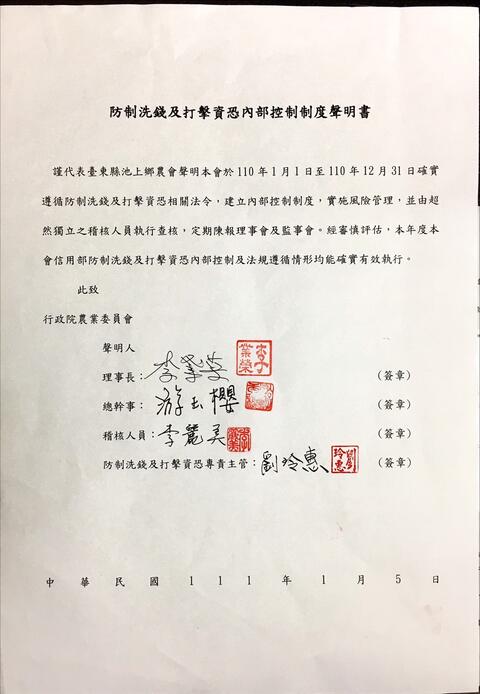 防制洗錢及打擊資恐內部控制制度聲明書
謹代表臺東縣池上鄉農會聲明本會於110年1月1日至110年12月31日確實
遵循防制洗錢及打擊資恐相關法令，建立內部控制制度，實施風險管理，並由超
然獨立之稽核人員執行查核，定期陳報理事會及監事會。經審慎評估，本年度本
會信用部防制洗錢及打擊資恐內部控制及法規遵循情形均能確實有效執行。
此致
行政院農業委員會
聲明人
理事長：李業榮 李業榮 （簽章）
總幹事：游玉櫻 （簽章）
稽核人員：李麗美 （簽章）
防制洗錢及打擊資恐專責主管：劉玲惠 劉玲惠 （簽章）
中華民國111年1月5日